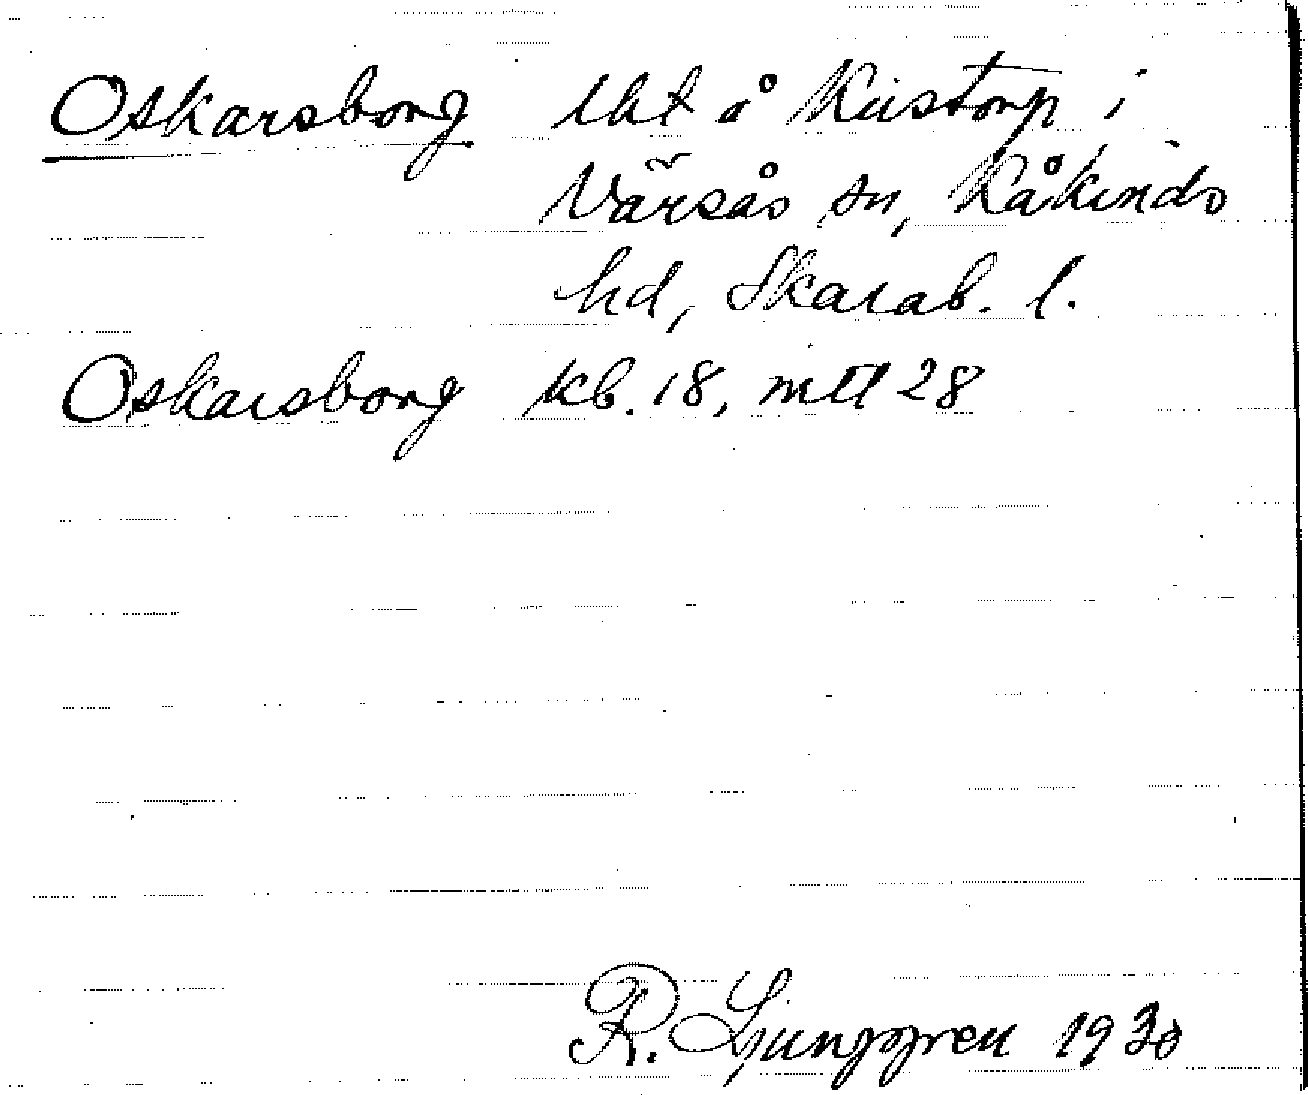 Oskarsborg lht å Kustorp i
Värsås sn, Kåkinds
hd, Skarab. l.
Oskarsborg kb. 18, mtl 28
R. Ljunggren 1930